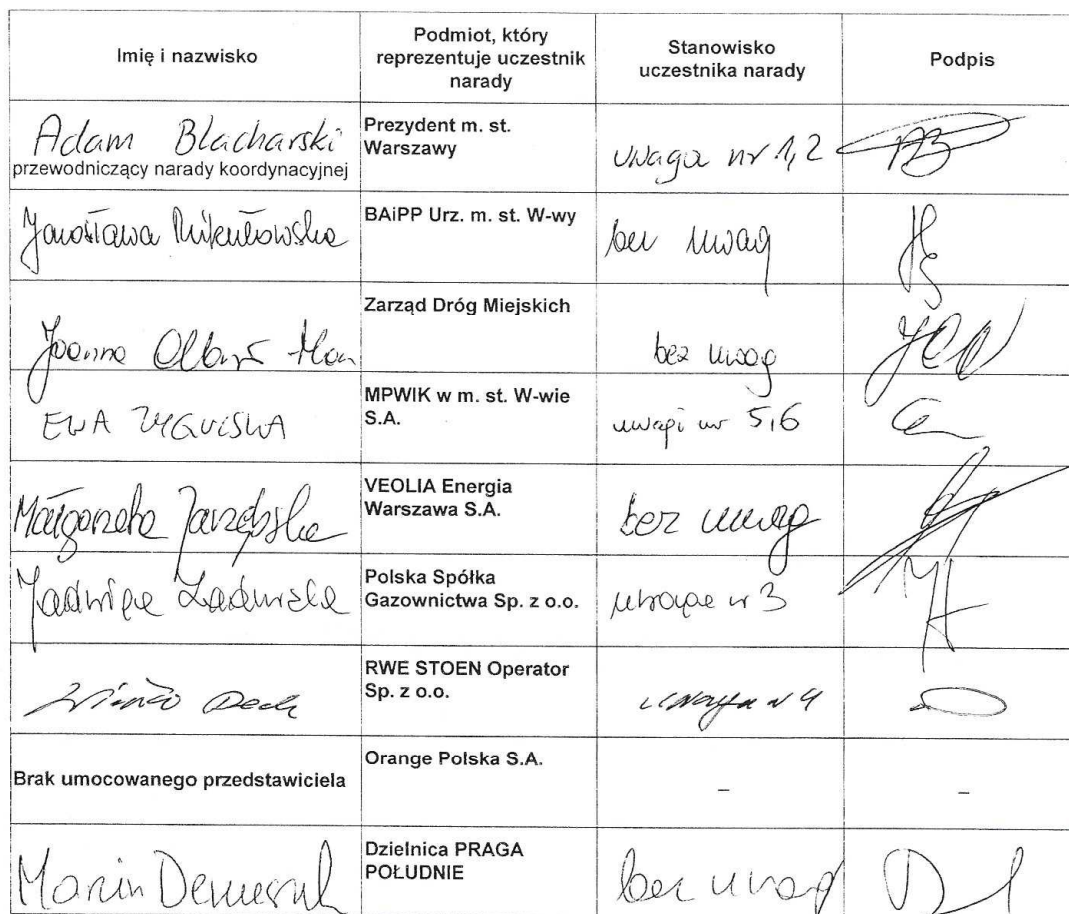 Imię i nazwisko
Podmiot, który
reprezentuje uczestnik
narady
Stanowisko
uczestnika narady
Podpis
Adam Blacharski
przewodniczący narady koordynacyjnej
Prezydent m. st.
Warszawy
uwaga nr 1,2
Jarosława Mikułowska
BAiPP Urz. m. st. W-wy
bez uwag
Joanna
Zarząd Dróg Miejskich
bez uwag
EWA
MPWIK w m. st. W-wie
S.A.
uwagi nr 5,6
Małgorzata Jarzębska
VEOLIA Energia
Warszawa S.A.
bez uwag
Jadwiga
Polska Spółka
Gazownictwa Sp. z o.o.
nr 3
RWE STOEN Operator
Sp. z o.o.
uwaga nr 4
Brak umocowanego przedstawiciela
Orange Polska S.A.
–
–
Marcin
Dzielnica PRAGA
POŁUDNIE
bez uwag